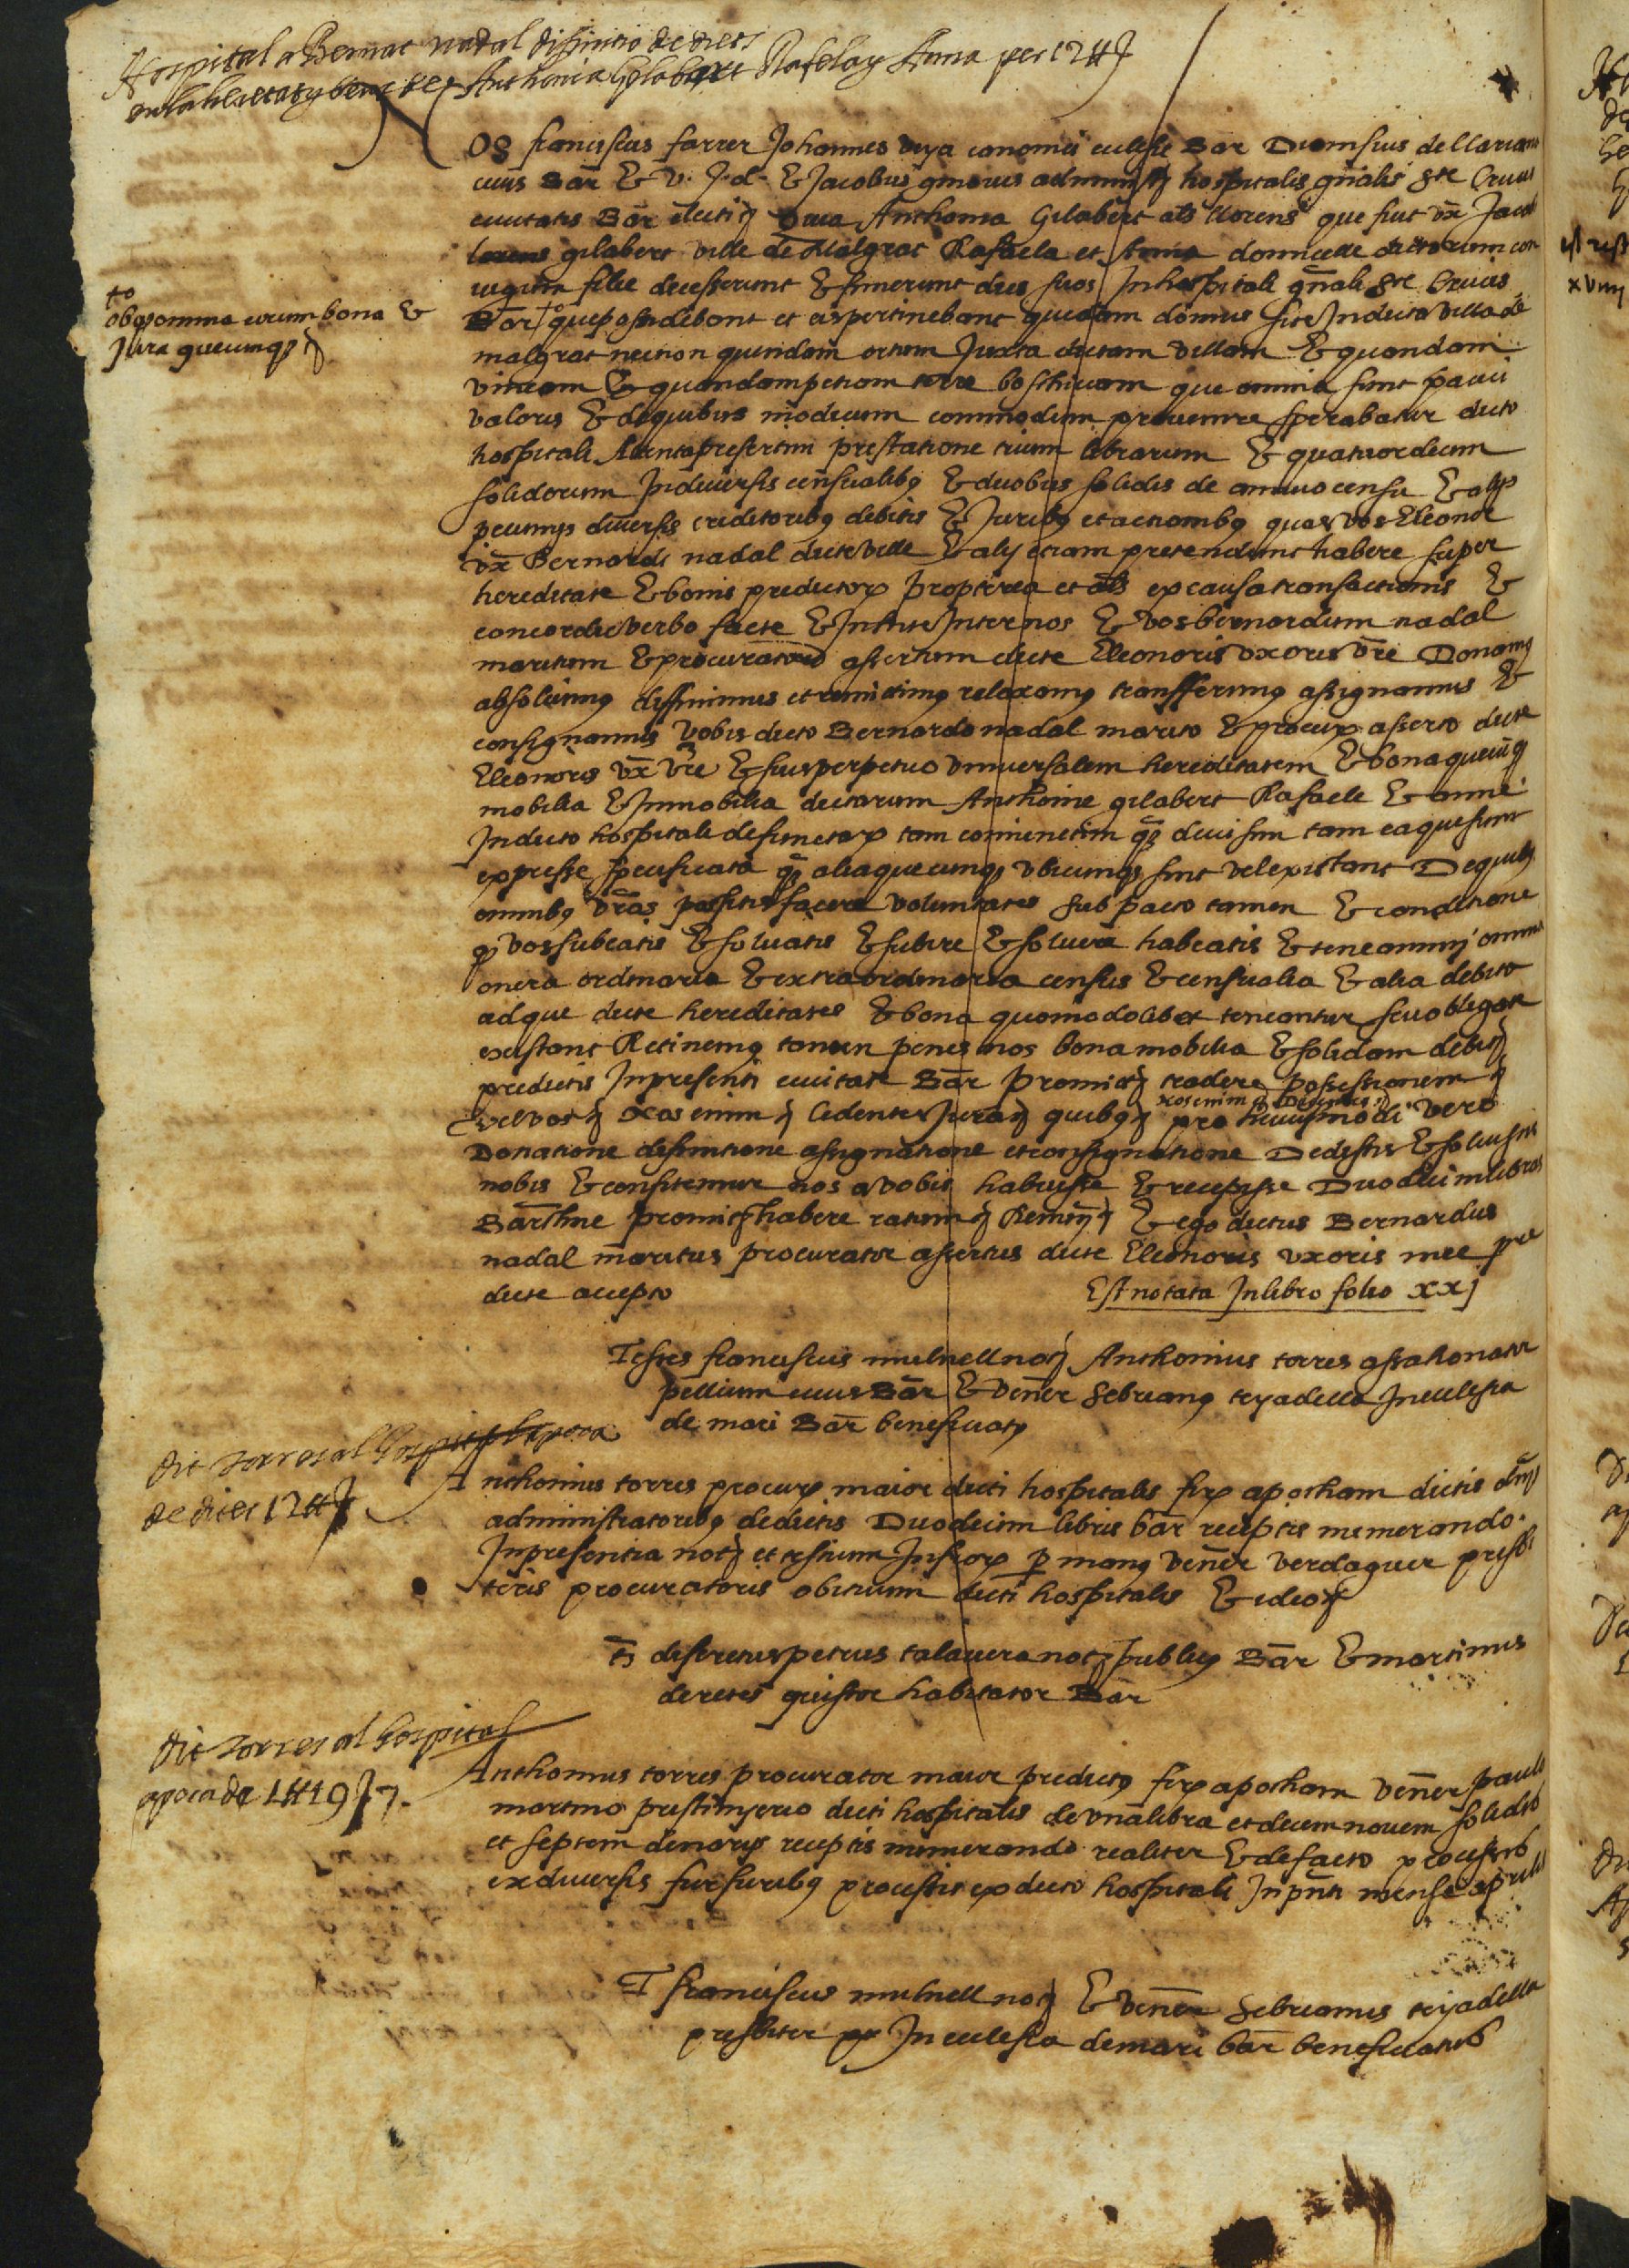 Hospital a Bernat nadal difinitio de drets
en la heretat y bens de Anthonia Gilabert Rafela y Anna per 12 ₶
NOS franciscus farrer Johannes veya canonici ecclesie Bar Dionisius de
civis Bar & v. J. d. & Jacobus administ hospitalis gnalis ste Crucis
civitatis Bar Quia Anthonia Gilabert als llorens que fuit vx
gilabert ville de Malgrat Rafaela et Anna domicelle dictarum con
iugum filie decesserunt & finierunt dies suos In hospitali gnali ste Crucis
to
obq omnia eorum bona &
Jura quecumq
Bar to que possidebant et eis pertinebant quedam domus site In dicta villa de
malgrat necnon quendam ortum Juxta dictam villam & quandam
vineam & quandam petiam terre boschivam que omnia sunt pauci
valoris & de quibus modicum commodum provenire sperabatur dicto
hospitali Attenta presertim prestatione trium librarum & quatuordecim
solidorum In diversis censualibq & duobus solidis de annuo censu & alijs
pecunijs diversis creditoribq debitis & Juribq et actionibq quas vos Eleonor
vx Bernardi nadal dicte ville & alij etiam pretendunt habere super
hereditate & bonis predictorum propterea et als ex causa transactionis &
concordie verbo facte & Inhite Inter nos & vos bernardum nadal
maritum & procuratore assertum dicte Eleonoris vxoris vre Donamq
absolvimq diffinimus et remittimq relaxamq transfferimq assignamus &
consignamus vobis dicto Bernardo nadal marito & procur asserto dicte
Eleonoris vx vre & suis perpetuo vniversalem hereditatem & bona quecuq
mobilia & Inmobilia dictarum Anthonie gilabert Rafaele & anne
In dicto hospitali defunctar tam coniunctim q divisim tam ea que sunt
expresse specificata q alia quecumq vbicumq sint vel existant De quibq
omnibq vras possitis facere voluntates sub pacto tamen & conditione
q vos subeatis & solvatis & subire & solvere habeatis & teneamini omnia
onera ordinaria & extraordinaria census & censualia & alia debita
ad que dicte hereditates & bona quomodolibet teneantur seu obligate
existant Retinemq tamen penes nos bona mobilia & solidam debit
predictis In presenti civitate Bar promitt tradere possessionem
vel vos Nos enim Cedentes Jura quibq pro huiusmodi vero
Donatione definitione assignatione et consignatione Dedistis & solvistis
nobis & confitemur nos a vobis habuisse & recepisse Duodecim libras
Bar promitt habere ratum & ego dictus Bernardus
nadal maritus procurator assertus dicte Eleonoris vxoris mee pre
dicte accepto
Est notata In libro folio xxj
Testes franciscus mulnell not Anthonius torres assahonator
pellium civis Bar & vener Sebrianq teyadella In ecclesia
de mari Bar beneficiatq
dit Torres al hospital apoca
de dites 12 ₶
Anthonius torres procur maior dicti hospitalis firm apocham dictis
administratoribq de dictis Duodecim libris bar receptis numerando
In presentia not et testium p manq vener verdaguer presbi
teris procuratoris obituum dicti hospitalis & ideo
ts discretus petrus talavera not publicq Bar & martinus
deretes habitator Bar
dit Torres al hospital
apoca de 1 ₶ 19 7.
Anthonius torres procurator maior predictq firm apocham vener paulo
martino dicti hospitalis de vna libra et decem novem solidis
et septem denarijs receptis numerando realiter & de facto processis
ex diversis furfuribq processis ex dicto hospitali In pnti mense aprilis
T franciscus mulnell not & vener Sebrianus teyadella
presbiter In ecclesia de mari bar beneficiatus